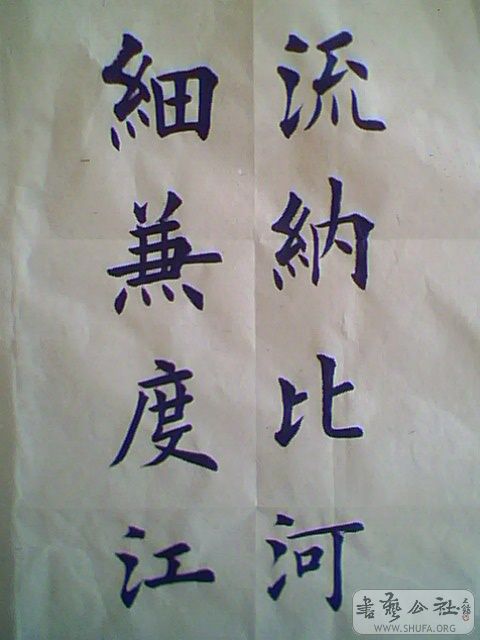 流納比河
細兼度江
書藝公社
WWW.SHUFA.ORG